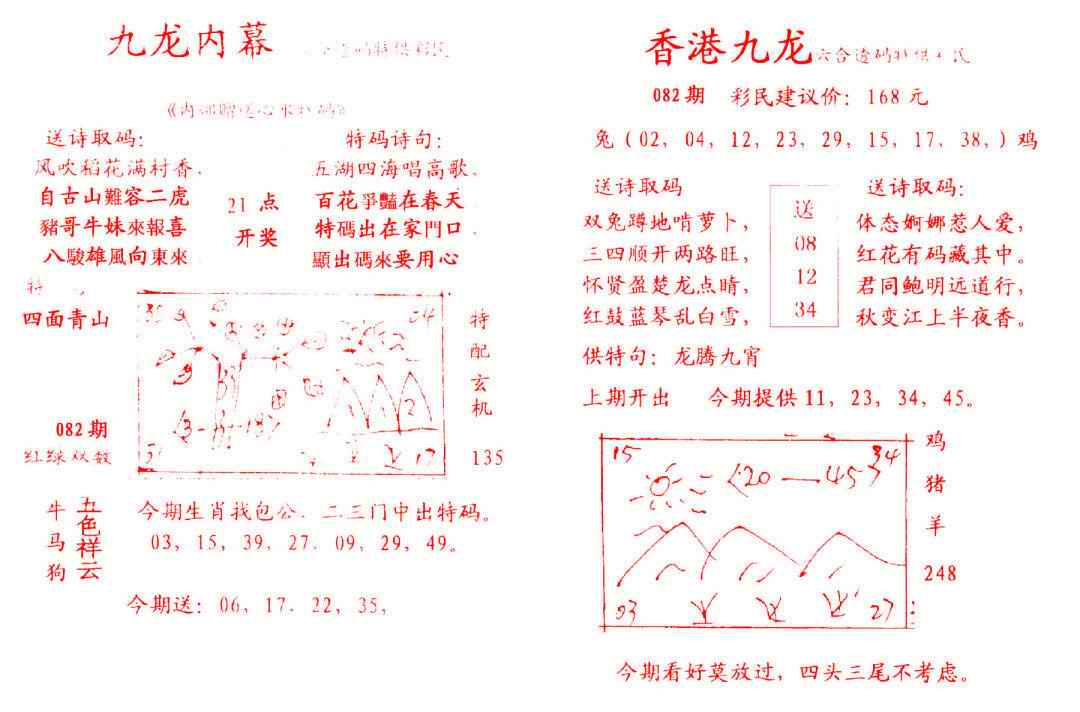 九龙内幕
码特供彩民
送诗取码：
风吹稻花满村香．
自古山難容二虎
豬哥牛妹來報喜
八駿雄風向東來
21 点
开奖
特码诗句：
五湖四海唱高歌．
百花爭豔在春天
特碼出在家門口
顯出碼來要用心
特
四面青山
082 期
红绿双数
34
17
特
配
玄
机
135
牛
马
狗
五色祥云
今期生肖找包公．二三门中出特码。
03，15，39，27．09，29，49。
今期送：06，17．22，35，
香港九龙
六合透码特供民
082 期 彩民建议价：168 元
兔（02，04，12，23，29，15，17，38，）鸡
送诗取码
双兔蹲地啃萝卜，
三四顺开两路旺，
怀贤盈楚龙点睛，
红鼓蓝琴乱白雪，
送
08
12
34
送诗取码：
体态婀娜惹人爱，
红花有码藏其中。
君同鲍明远道行，
秋变江上半夜香。
供特句：龙腾九宵
上期开出 今期提供 11，23，34，45。
15
20—45
34
03
27
鸡
猪
羊
248
今期看好莫放过，四头三尾不考虑。